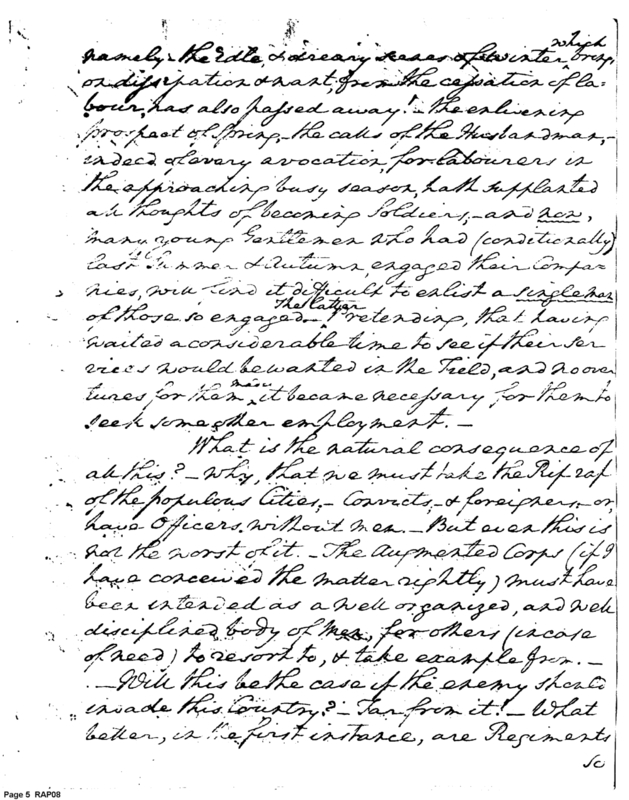 which
namely - the Idle, & dreary scenes of winter bring
on dissipation & want, from the cessation of la=
bour, has also passed away! - The enlivening
prospect of Spring, - the calls of the Husbandman, -
indeed of every avocation, for labourers in
the approaching busy season, hath supplanted
all thoughts of becoming Soldiers; - and now,
many young Gentlemen who had (conditionally)
last Summer & Autumn, engaged their Compa=
nies, will find it difficult to enlist a single man
of those so engaged. - The latter Pretending, that having
waited a considerable time to see if their ser
vices would be wanted in the Field, and no over
tures for them made, it became necessary for them to
seek some other employment. -
What is the natural consequence of
all this? - why, that we must take the Rif raf
of the populous Cities, - Convicts, - & foreigners, - or,
have Officers without men. - But even this is
not the worst of it. - The Augmented Corps (if I
have conceived the matter rightly) must have
been intended as a well organized, and well
disciplined body of Men, for others (in case
of need) to resort to, & take example from. -
- Will this be the case if the enemy should
invade this Country? - Far from it! - What
better, in the first instance, are Regiments
so
Page 5 RAP08